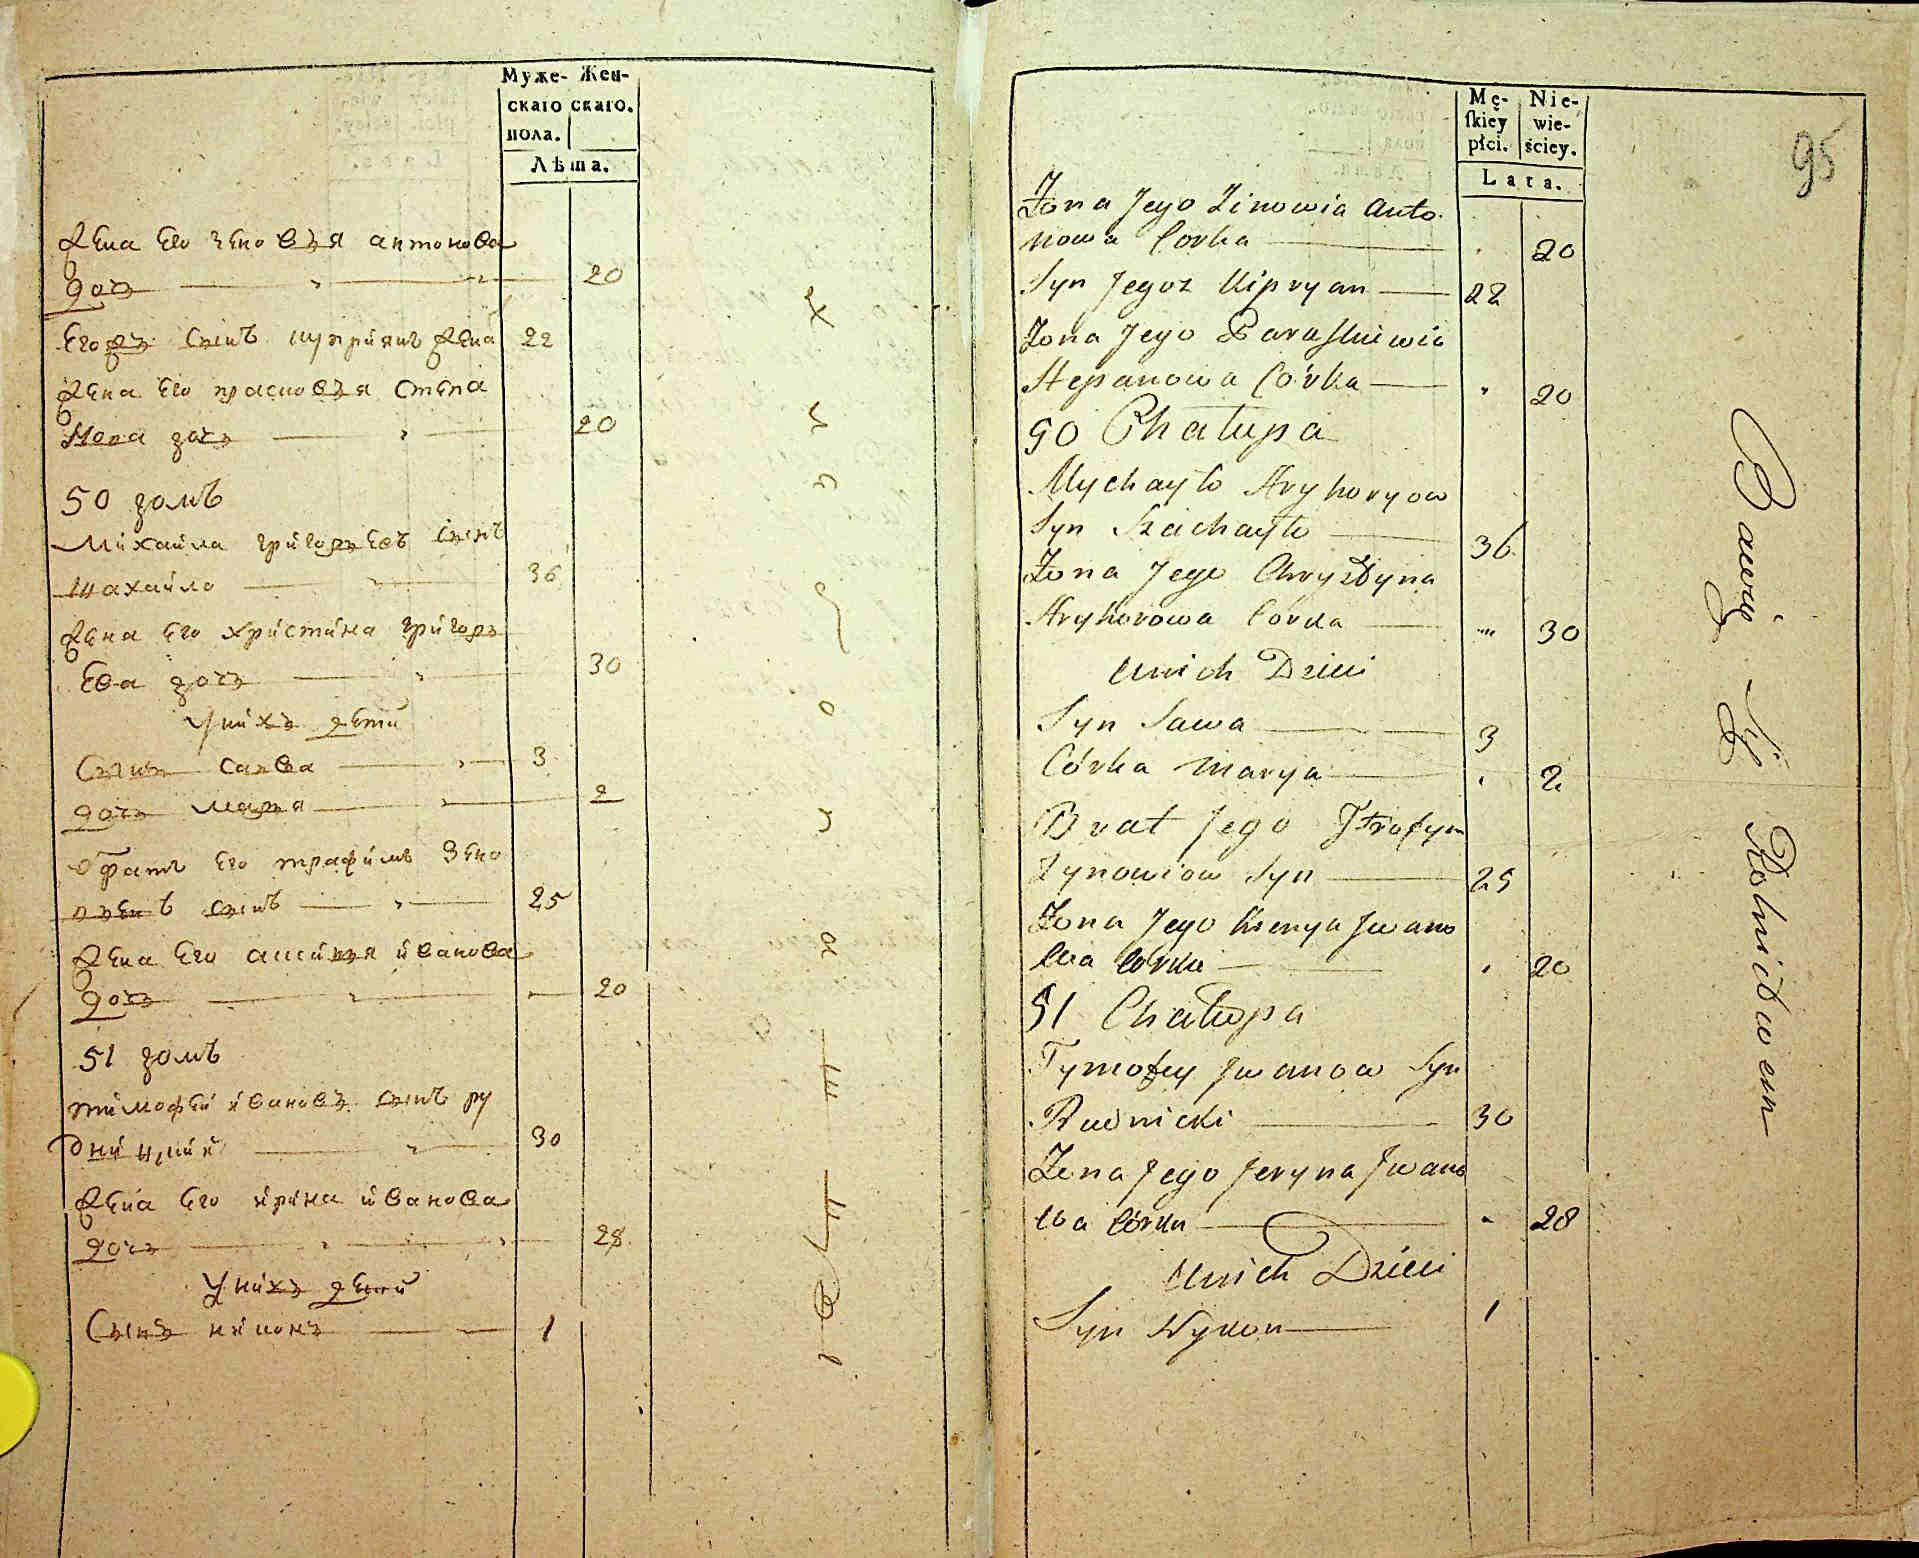 Муже- Жен-
скаго скаго.
пола.
Лѣта.
жена его зеновъя антонова
дочъ 20
егоръ синъ киприянъ жена 22
жена его прасковъя степа
нова дочъ 20
50 домъ
михайла григоръевъ синъ
шахайло 36
жена его христина григоръ
ева дочъ 30
у нихъ дети
синъ савва 3
дочъ маръя 2
братъ его трафимъ зено
въевъ синъ 25
жена его аксинья иванова
дочъ 20
51 домъ
тимофей ивановъ синъ ру
дницкий 30
жена его ирина иванова
дочъ 28
у нихъ дети
Синъ никонъ 1
Mę- Nie-
skiey wie-
płci. ściey.
Lata.
95
Żona Jego Zinowia Anto
nowa Corka 20
Syn Jegoz Kipryan 22
Żona Jego Paraskiewia
Stepanowa Córka 20
50 Chałupa
Mychayło Hryhoryow
Syn Szachayło 36
Żona Jego Chrystyna
Hryhorowa Corka 30
Unich Dzieci
Syn Sawa 3
Córka Marya 2
Brat Jego Trofym
Zynowiow Syn 25
Żona Jego Ksenya Jwano
wa Córka 20
51 Chałupa
Tymofey Jwanow Syn
Rudnicki 30
Żona Jego Jeryna Jwano
wa Córka 28
Unich Dzieci
Syn Nykon 1
Bawią Się Rolnictwem